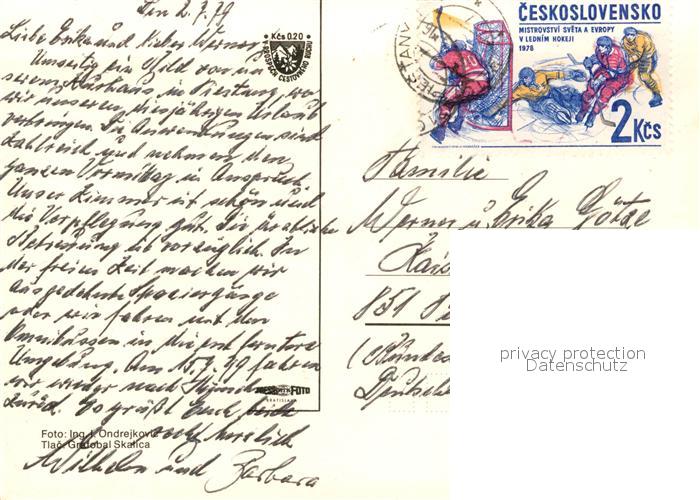 Den 2.7.79
Liebe Erika und lieber Werner,
Umseitig ein Bild von un
serem Kurhaus in Piestany, wo
wir unseren diesjährigen Urlaub
verbringen. Die Anwendungen sind
zahlreich und nehmen den
ganzen Vormittag in Anspruch.
Unser Zimmer ist schön und
die Verpflegung gut. Die ärztliche
Betreuung ist vorzüglich. In
der freien Zeit machen wir
ausgedehnte Spaziergänge
oder wir fahren mit den
Omnibussen in die
Umgebung. Am 15.7.79 fahren
wir wieder nach
zurück. So grüßt Euch
recht herzlich
Wilhelm und Barbara
Kčs 0.20
ČESKOSLOVENSKO
MISTROVSTVÍ SVĚTA A EVROPY
V LEDNÍM HOKEJI
1978
2 Kčs
Familie
Werner u. Erika Götze
851
(Bundes
Deutschl
BRATISLAVA
Foto: Ing. I. Ondrejkovič
Tlač: Grafobal Skalica
privacy protection
Datenschutz